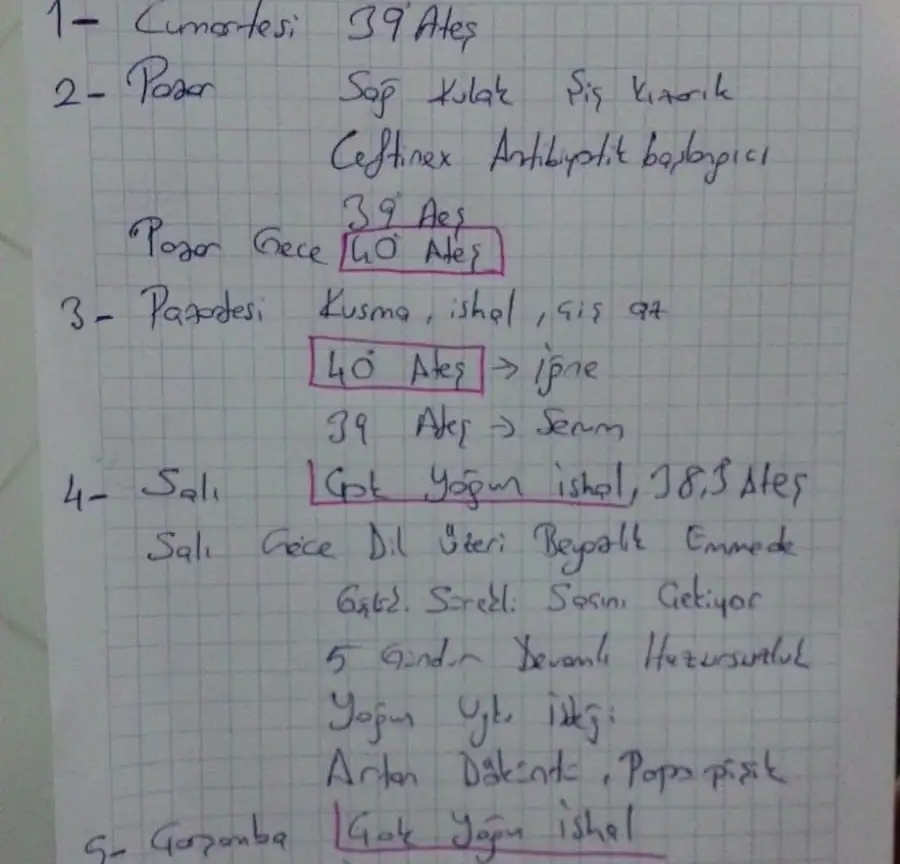 1- Cumartesi 39° Ateş
2- Pazar Sağ Kulak Şiş Kızarık
Ceftinex Antibiyotik başlangıcı
39° Ateş
Pazar Gece 40° Ateş
3- Pazartesi Kusma, ishal, çiş az
40° Ateş → iğne
39 Ateş → Serum
4- Salı Çok Yoğun ishal, 38,5 Ateş
Salı Gece Dil Üzeri Beyazlık Emmede
Güçlük. Sürekli Saçını Çekiyor
5 Gündür Devamlı Huzursuzluk
Yoğun Uyku isteği
Artan Döküntü, Popo pişik
5- Çarşamba Çok Yoğun ishal